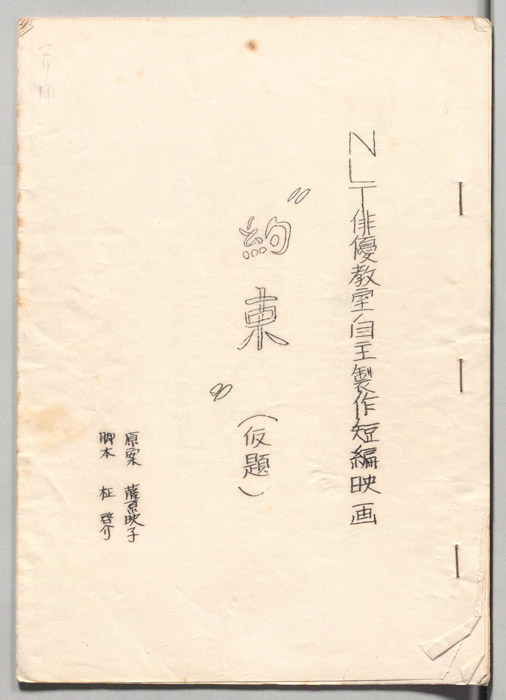 NLT俳優教室自主製作短編映画
〃約束〃(仮題)
原案 藤原映子
脚本 柾 啓介